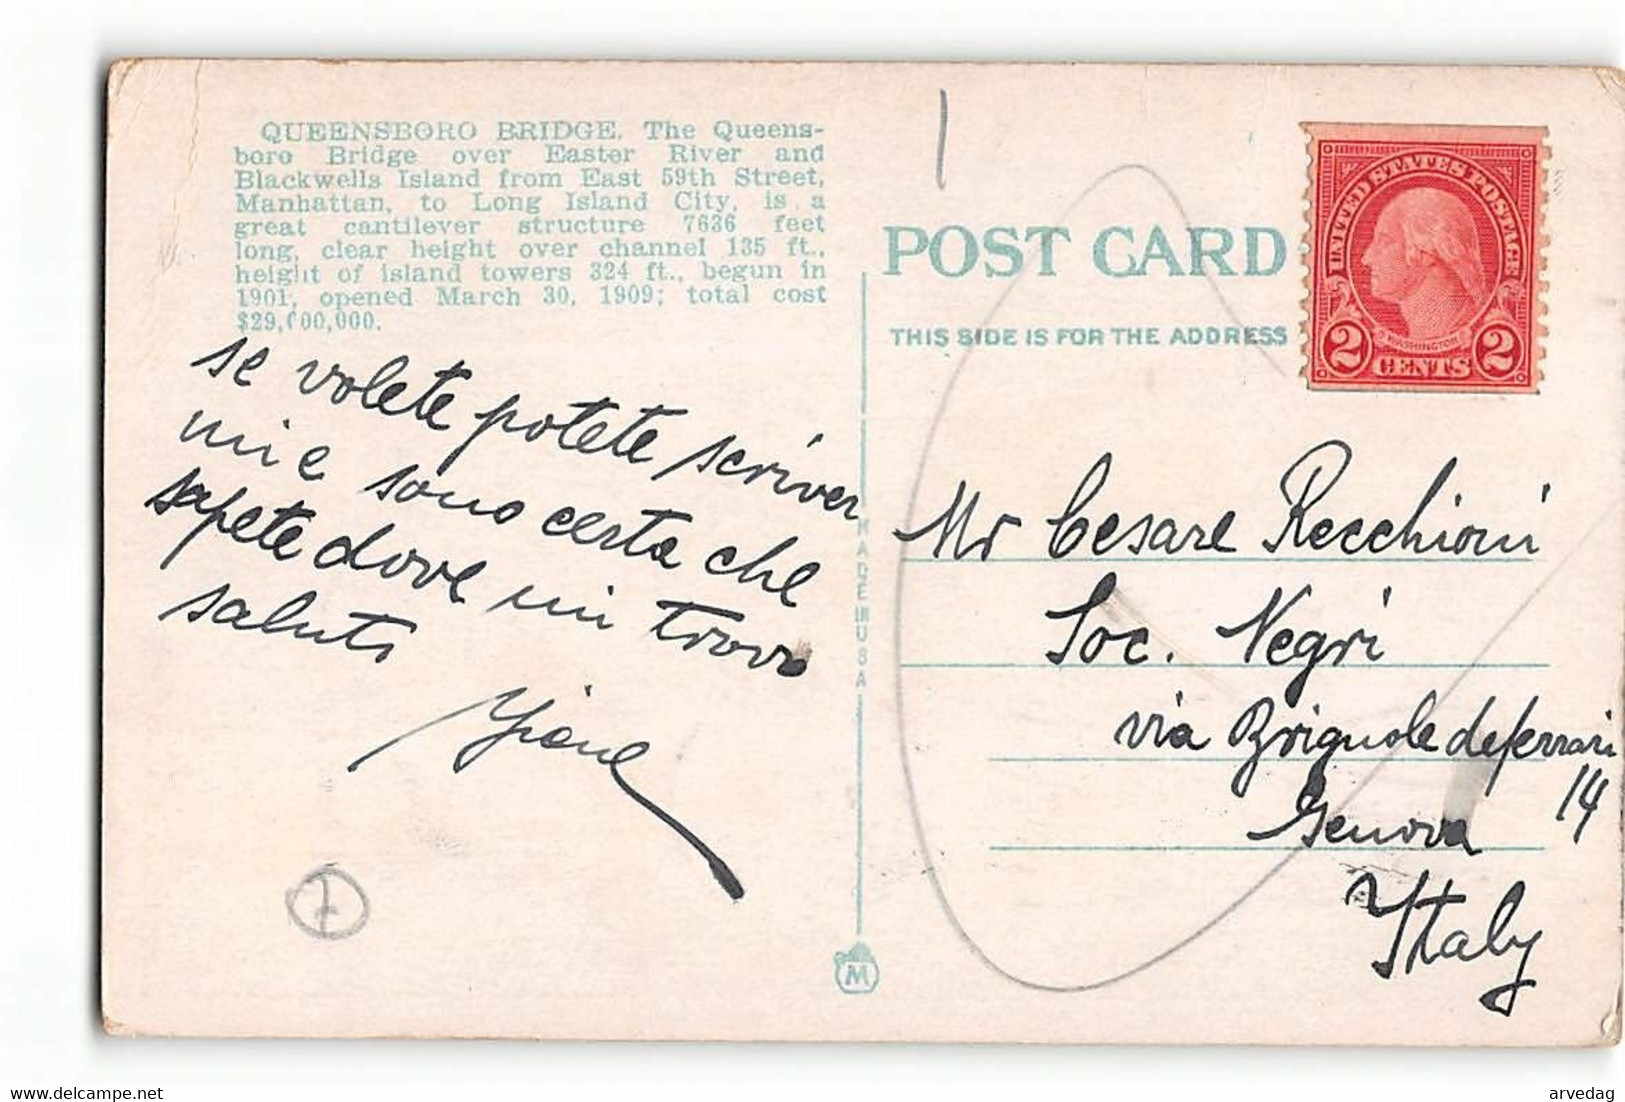 QUEENSBORO BRIDGE. The Queens-
boro Bridge over Easter River and
Blackwells Island from East 59th Street,
Manhattan, to Long Island City, is a
great cantilever structure 7636 feet
long, clear height over channel 135 ft.,
height of island towers 324 ft., begun in
1901, opened March 30, 1909; total cost
$29,000,000.
se volete potete scriver
mi e sono certa che
sapete dove mi trovo
saluti
MADE IN USA
M
POST CARD
THIS SIDE IS FOR THE ADDRESS
UNITED STATES POSTAGE
WASHINGTON
2 CENTS 2
Mr Cesare Recchioni
Soc. Negri
via Brignole deferrari
14
Genova
Italy
delcampe.net
arvedag